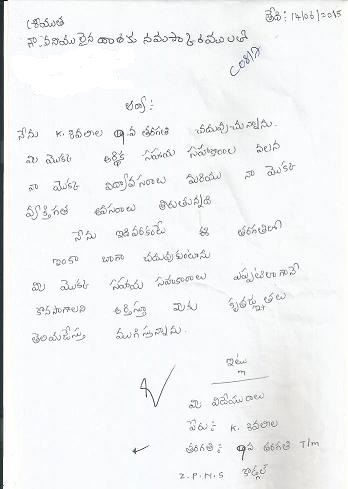 తేది: 14/06/2015
శ్రీయుత
గౌ.వనీయులైన దాతకు నమస్కారములతో
ఆర్యా:
నేను K. శివలీల 9వ తరగతి చదువుచున్నాను.
మీ యొక్క ఆర్థిక సహాయ సహకారాల వలన
నా యొక్క విద్యావసరాలు మరియు నా యొక్క
వ్యక్తిగత అవసరాలు తీరుతున్నవి
నేను ఇదివరకంటే ఈ తరగతిలో
ఇంకా బాగా చదువుకుంటాను
మీ యొక్క సహాయ సహకారాలు ఎప్పటిలాగానే
కొనసాగాలని ఆశిస్తూ మీకు కృతజ్ఞతలు
తెలియజేస్తూ ముగిస్తున్నాను.
ఇట్లు
మీ విదేయురాలు
పేరు: K. శివలీల
తరగతి: 9వ తరగతి T/m
Z.P.H.S